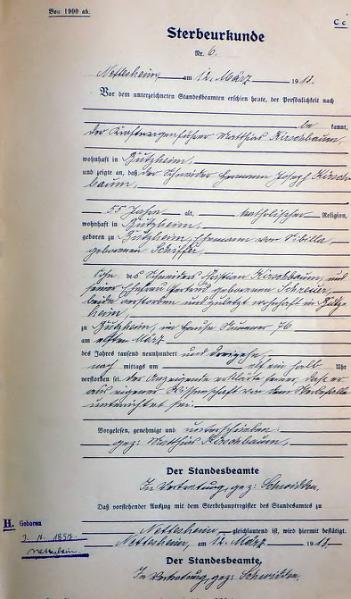 Von 1900 ab.
C c
Sterbeurkunde
Nr. 6.
Nettesheim, am 12. März 1913.
Vor dem unterzeichneten Standesbeamten erschien heute, der Persönlichkeit nach
be kannt,
der Matthias Kirschbaum,
wohnhaft in Butzheim,
und zeigte an, daß der Schneider Hermann Joseph Kirsch-
baum,
55 Jahre alt, katholischer Religion,
wohnhaft in Butzheim,
geboren zu Butzheim, Ehemann von Sibilla
geborenen
Sohn des Schneiders Kirschbaum und
seiner Ehefrau Gertrud geborenen
beide verstorben und zuletzt wohnhaft in Butz-
heim,
zu Butzheim, im Hause Nummer 76
am elften März
des Jahres tausend neunhundert und dreizehn
nach mittags um elf ein halb Uhr
verstorben sei. Der Anzeigende erklärte ferner, daß er
aus eigener Wissenschaft von dem Sterbefalle
unterrichtet sei.
Vorgelesen, genehmigt und unterschrieben
gez: Matthias Kirschbaum.
Der Standesbeamte
In Vertretung, gez:
Daß vorstehender Auszug mit dem Sterbehauptregister des Standesamtes zu
H. Geboren
Nettesheim gleichlautend ist, wird hiermit bestätigt.
Nettesheim, am 12. März 1913.
Der Standesbeamte
In Vertretung, gez: